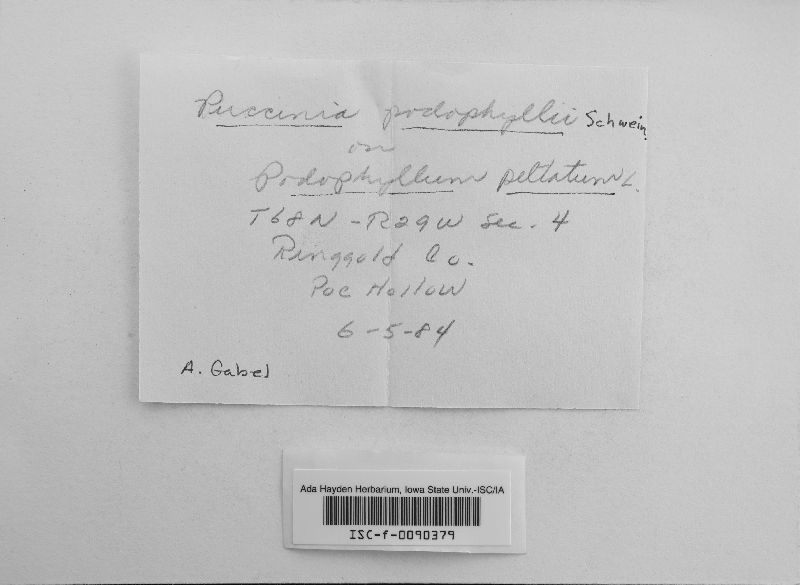 Puccinia podophyllii Schwein.
on
Podophyllum peltatum L.
T68N - R29W Sec. 4
Ringgold Co.
Poe Hollow
6-5-84
A. Gabel
Ada Hayden Herbarium, Iowa State Univ.-ISC/IA
ISC-f-0090379